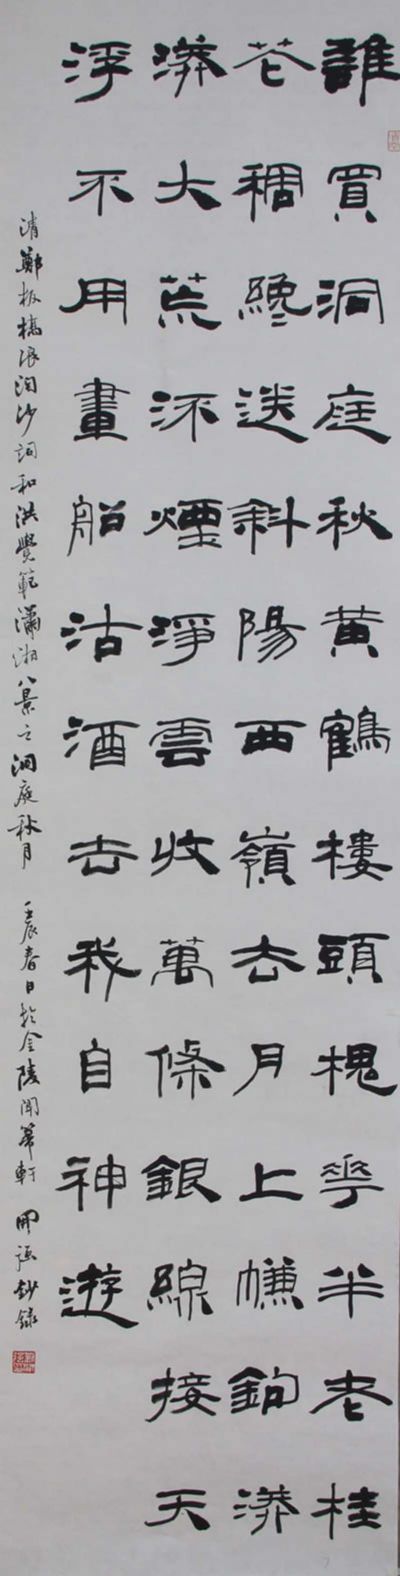 誰買洞庭秋黃鶴樓頭槐華半老桂
花稠纔送斜陽西嶺去月上㡘鉤漭
漭大荒流煙淨雲收萬條銀線接天
浮不用畫船沽酒去我自神遊
清鄭板橋浪淘沙詞和洪覺範瀟湘八景之洞庭秋月 壬辰春日於金陵聞軒 鈔錄